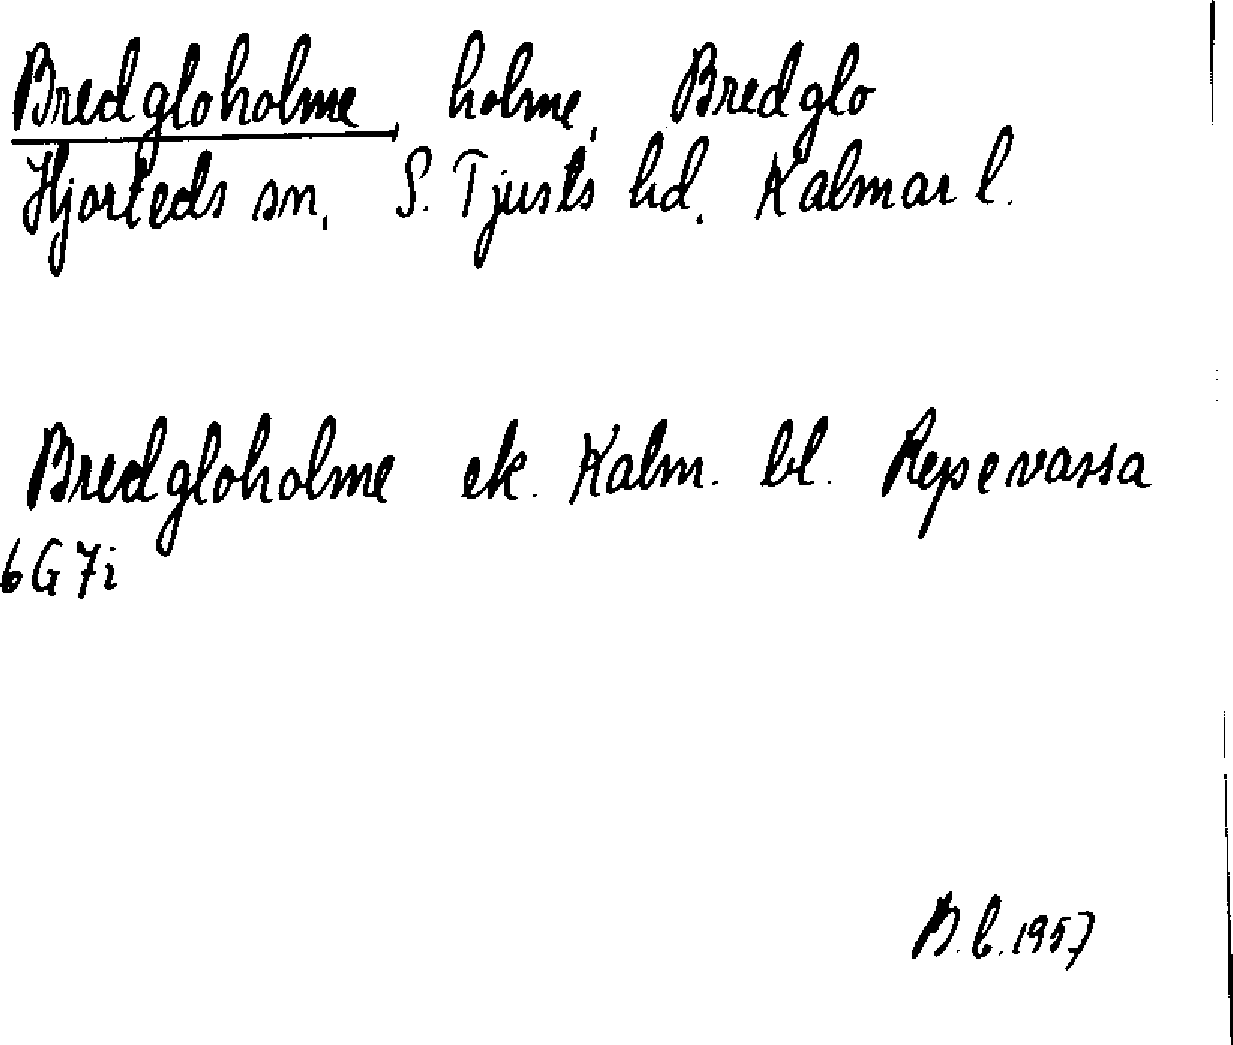 Bredgloholme, holme, Bredglo
Hjorteds sn, S. Tjusts hd. Kalmar l.
Bredgloholme ek. Kalm. bl. Repevassa
6G 7i
B.L. 1957